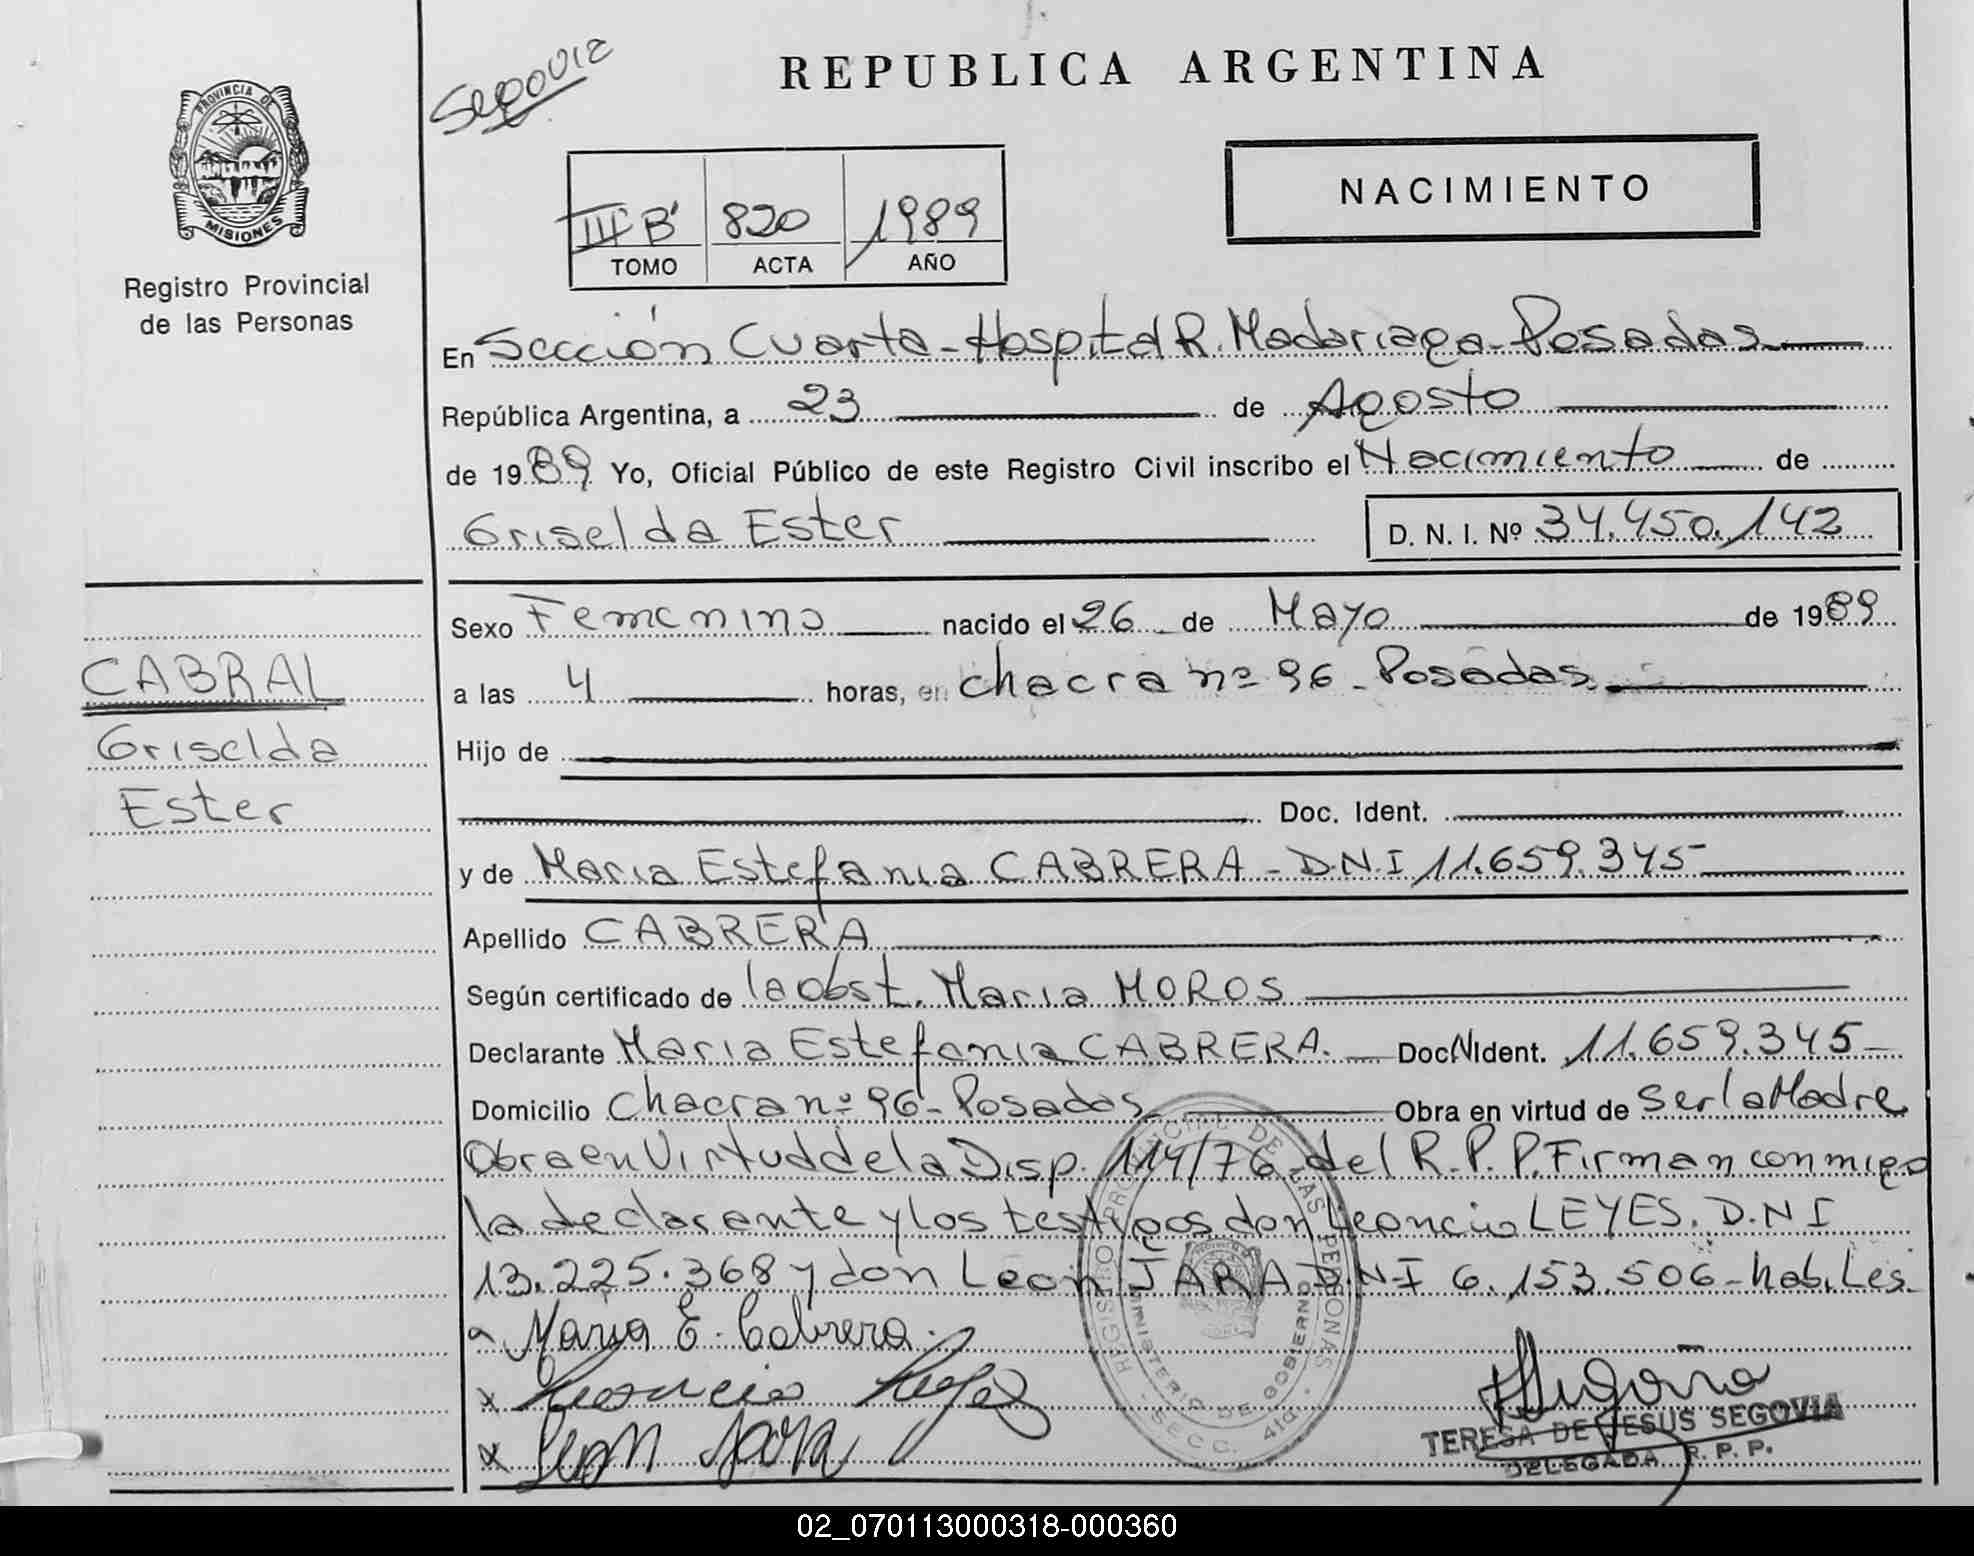 Segovia
REPUBLICA ARGENTINA
PROVINCIA DE
MISIONES
Registro Provincial
de las Personas
III "B" 820 1989
TOMO ACTA AÑO
NACIMIENTO
En Sección Cuarta - Hospital R. Madariaga - Posadas
República Argentina, a 23 de Agosto
de 1989 Yo, Oficial Público de este Registro Civil inscribo el Nacimiento de
Griselda Ester D. N. I. Nº 34.450.142
CABRAL
Griselda
Ester
Sexo Femenino nacido el 26 de Mayo de 1989
a las 4 horas, en chacra nº 96 - Posadas.
Hijo de
Doc. Ident.
y de Maria Estefania CABRERA - D.N.I 11.659.345
Apellido CABRERA
Según certificado de la obst. Maria MOROS
Declarante Maria Estefania CABRERA. Doc. Ident. 11.659.345
Domicilio Chacra nº 96 - Posadas Obra en virtud de ser la Madre
Obra en Virtud de la Disp. 114/76 del R.P.P. Firman conmigo
la declarante y los testigos don Leoncio LEYES. D.N.I
13.225.368 y don Leon JARA D.N.I 6.153.506 - habiles.
Maria E. Cabrera.
x Leoncio Leyes
x Leon Jara
REGISTRO PROVINCIAL DE LAS PERSONAS
MINISTERIO DE GOBIERNO
SECC. 4ta.
TERESA DE JESUS SEGOVIA
DELEGADA R. P. P.
02_070113000318-000360